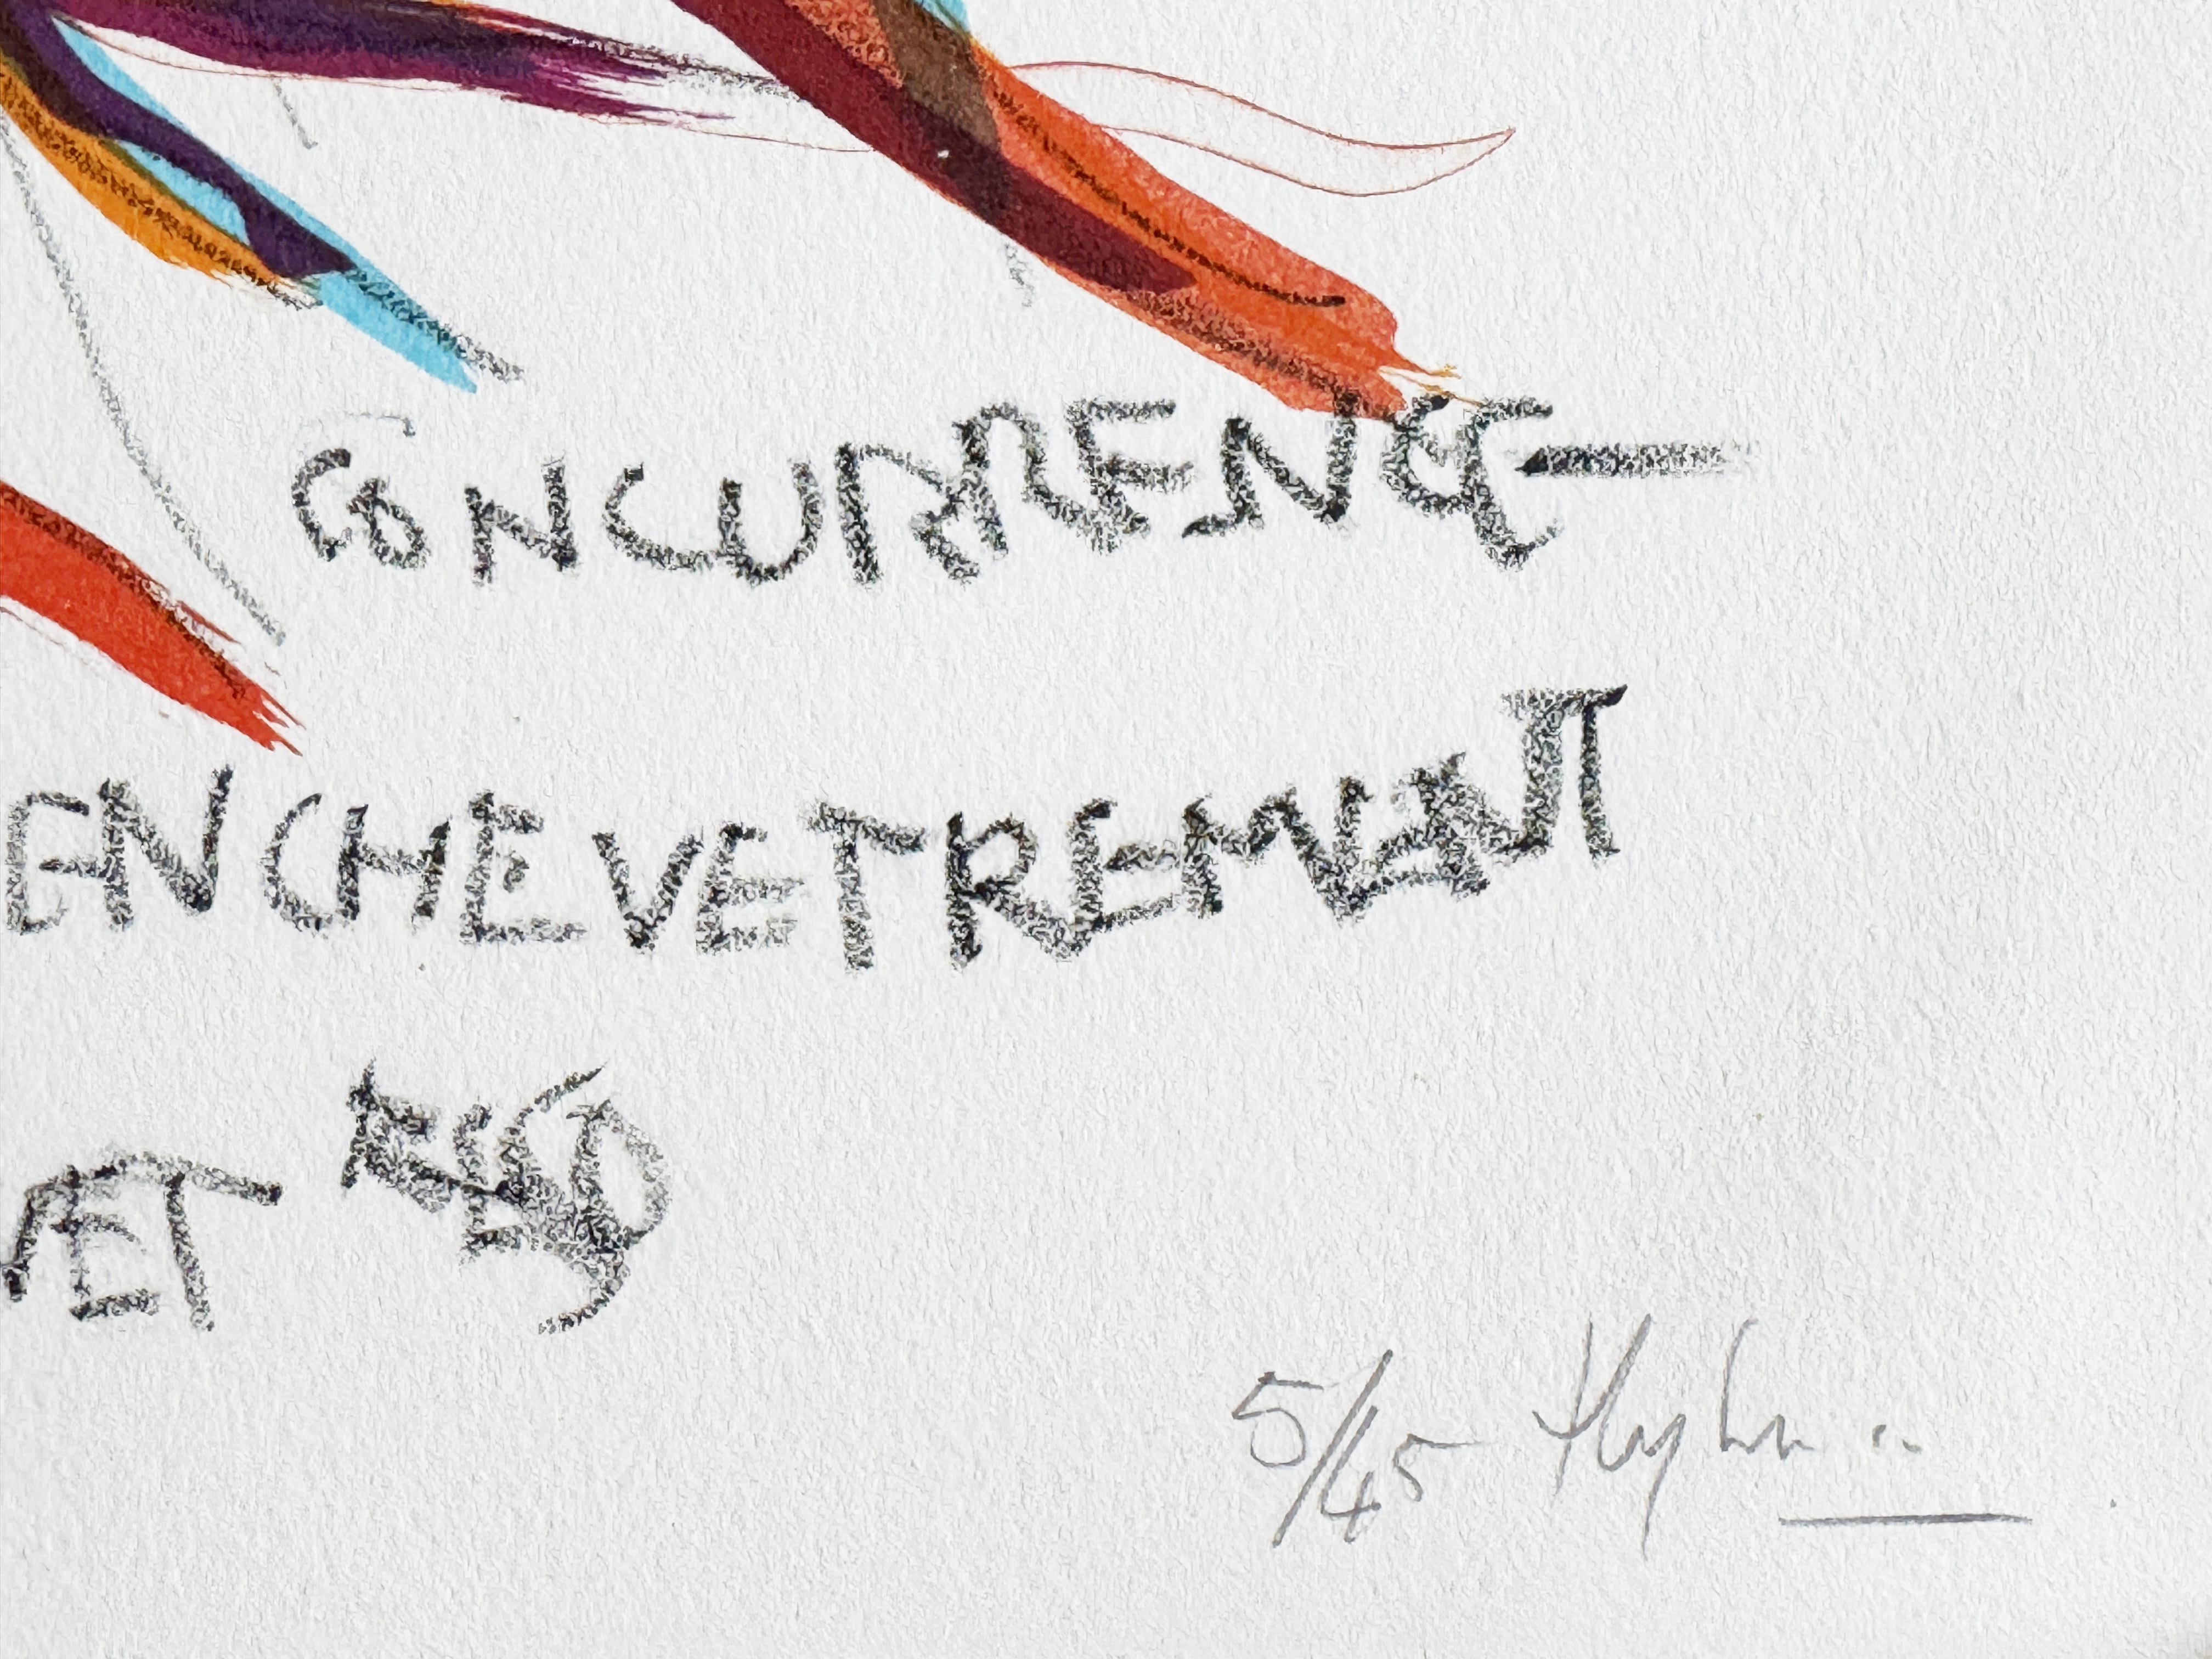 CONCURRENCE—
ENCHEVETREMENT
ET
5/45